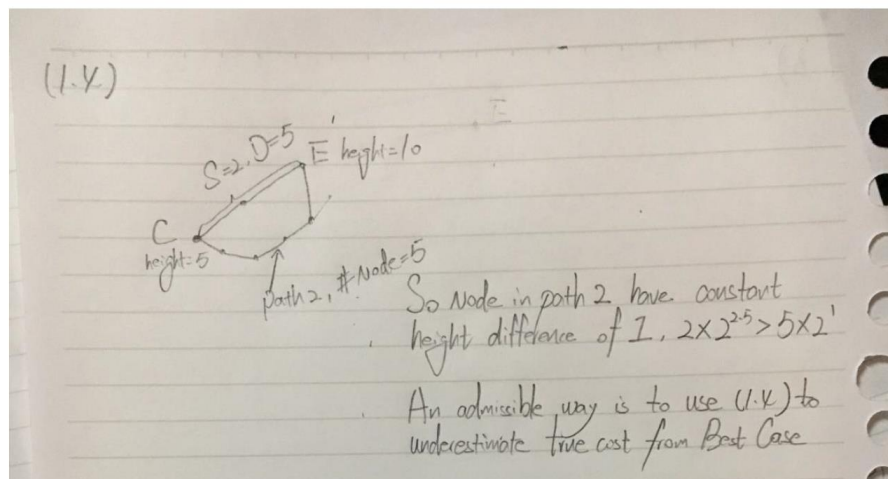 (1.4)
S=2, D=5
E height=10
C
height=5
path 2, # Node=5
So Node in path 2 have constant
height difference of 1, 2×2^2.5 > 5×2^1
An admissible way is to use (1.4) to
underestimate true cost from Best Case